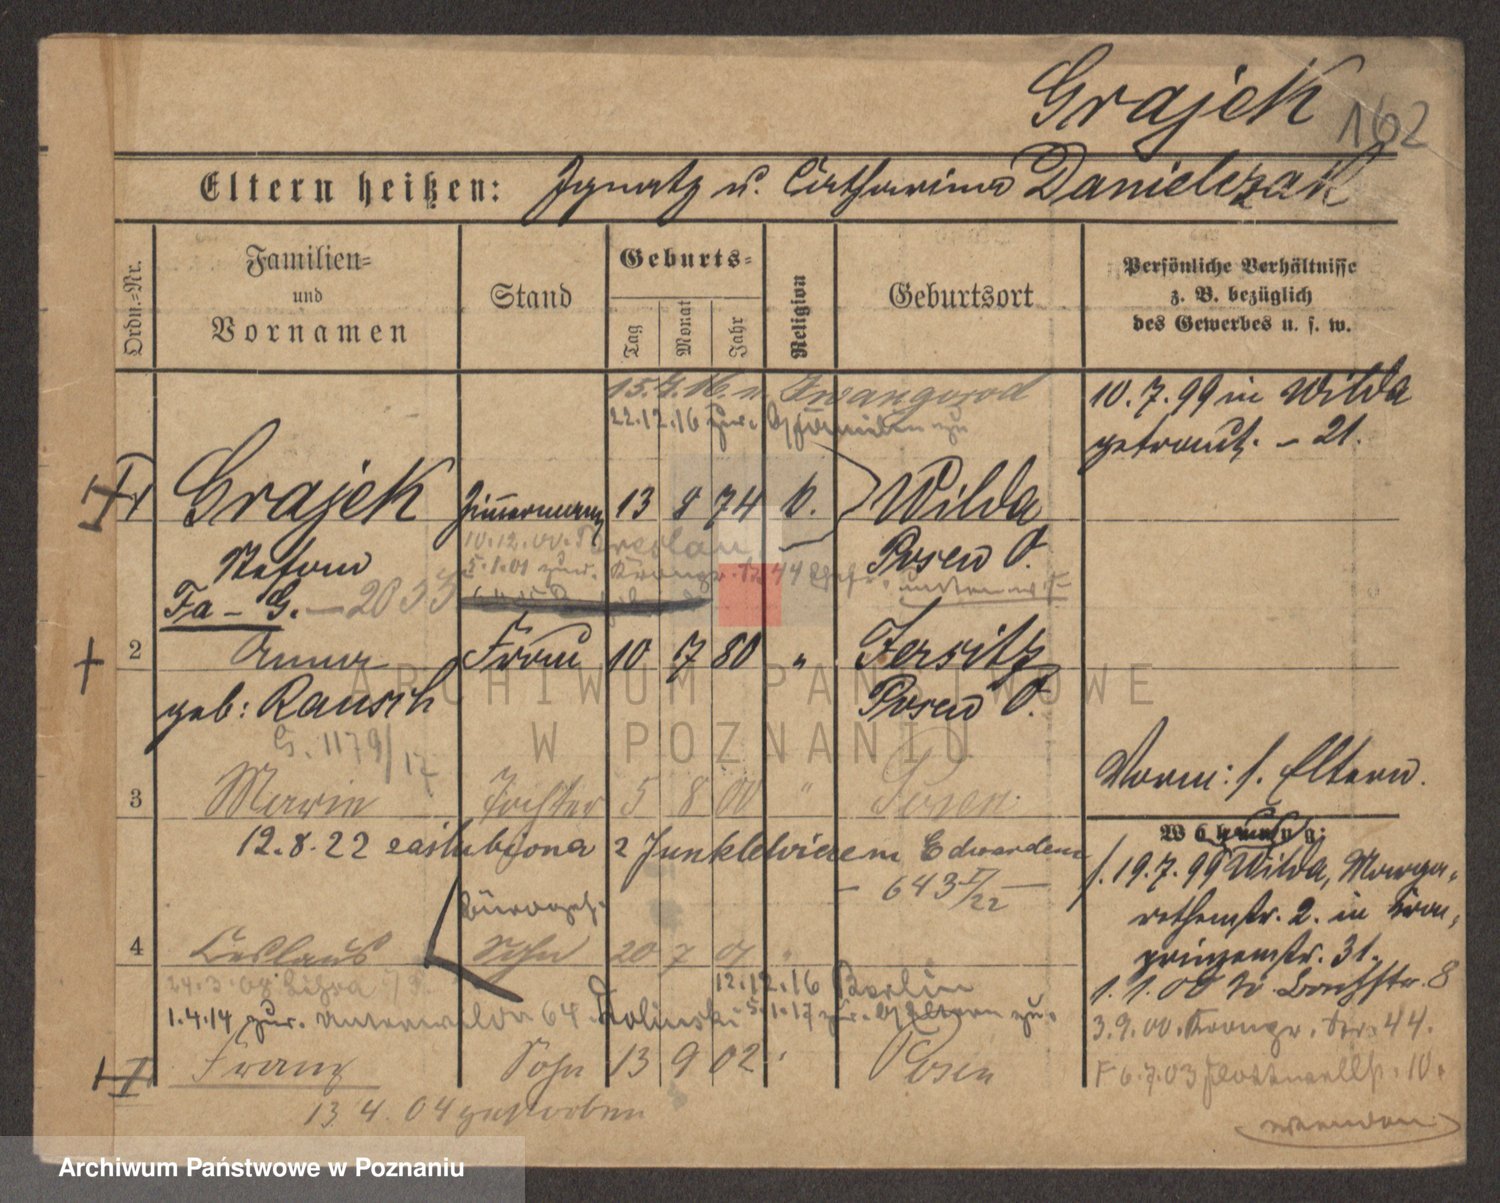 Grajek 162
Eltern heißen: Ignatz u. Catharina Danielczak
Ordn.-Nr.
Familien- und Vornamen
Stand
Geburts-
Tag
Monat
Jahr
Religion
Geburtsort
Persönliche Verhältnisse
z. B. bezüglich
des Gewerbes u. s. w.
15.4.16. n. Iwangorod
22.12.16 zur.
10.7.99 in Wilda
getraut. - 21.
Grajek Zimmermann 13 8 74 k. Wilda
Stefan
10.12.00. Breslau
Posen O.
5.1.01 zur. Kronpr. 44
Fa - G. - 2035
2 Anna Frau 10 7 80 " Jersitz
geb: Rausch Posen O.
G. 1179/17
Vorm: s. Eltern.
3 Marie Tochter 5 8 00 " Posen
Wohnung:
12.8.22 zaślubiona z Junklewiczem Edwardem
- 643 I/22 -
19.7.99 Wilda, Marga-
rethenstr. 2. in Kron-
prinzenstr. 31.
Bürogeh.
4 Ceslaus Sohn 20 7 01 "
1.1.00 Bachstr. 8
24.3.08
12.12.16 Berlin
1.4.14 zur. Unterwilda 64. Wolinski 5.1.17 zur. Eltern zu.
3.9.00. Kronpr. str. 44.
Franz Sohn 13 9 02 " Posen
6.7.03 10.
13 4. 04 gestorben
wenden
ARCHIWUM PAŃSTWOWE
W POZNANIU
Archiwum Państwowe w Poznaniu